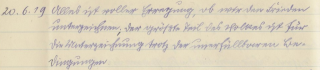 20.6.19 Alles ist voller Erregung, ob wir den Frieden
unterzeichnen, der größte Teil des Volkes ist für
die Unterzeichnung trotz der unerfüllbaren Be-
dingungen